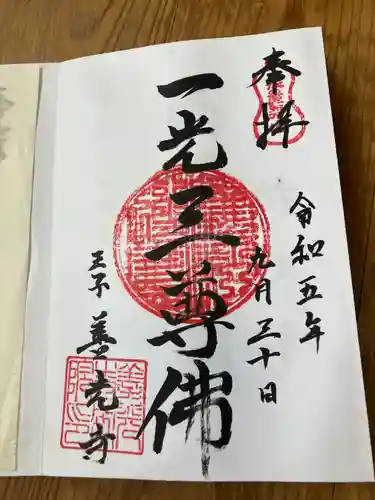 奉拝
令和五年
九月三十日
一光三尊佛
王子 善光寺